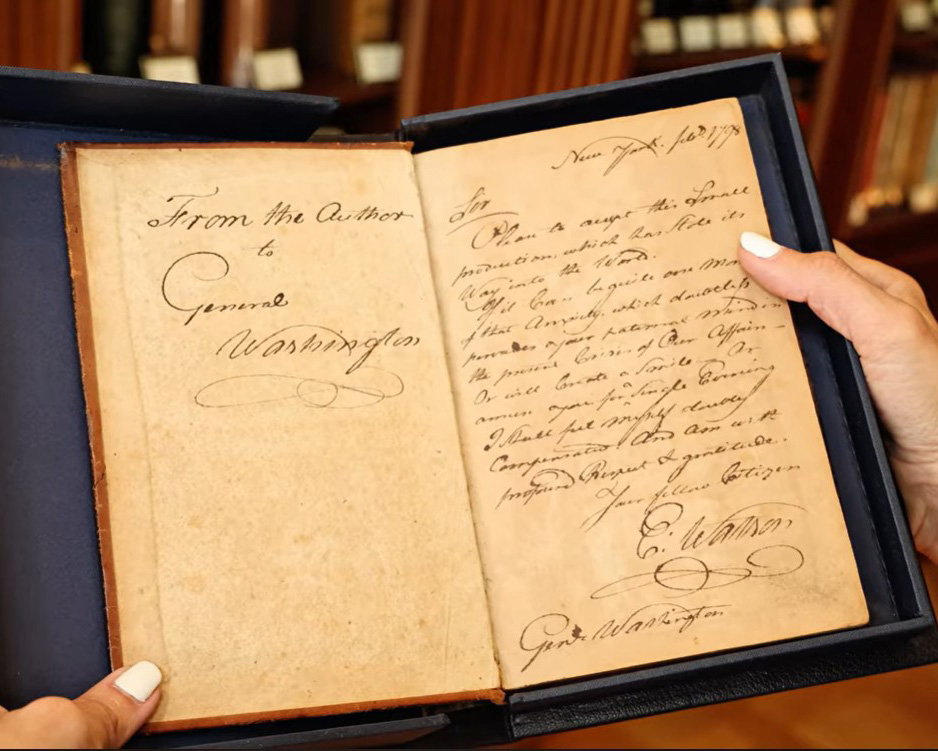 From the Author
to
General
Washington
New York. feb. 1798
Sir
Please to accept this Small
production, which has Stole its
Way into the World.
If it Can beguile one Mom
of that Anxiety, which doubtless
pervades your paternal Mind in
the present Crisis of Our Affairs
Or will Create a Smile – Or
amuse you for a Single Evening
I Shall feel myself doubly
Compensated. And Am with
profound Respect & gratitude.
Your fellow Citizen
E. Watson
Genl. Washington